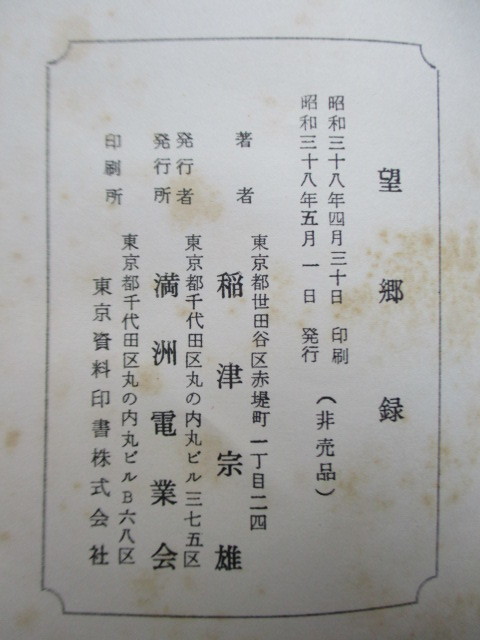 望郷録
昭和三十八年四月三十日 印刷
昭和三十八年五月一日 発行
(非売品)
東京都世田谷区赤堤町一丁目二四
著者 稲津宗雄
東京都千代田区丸の内丸ビル三七五区
発行者
発行所 満洲電業会
東京都千代田区丸の内丸ビルB六八区
印刷所 東京資料印書株式会社